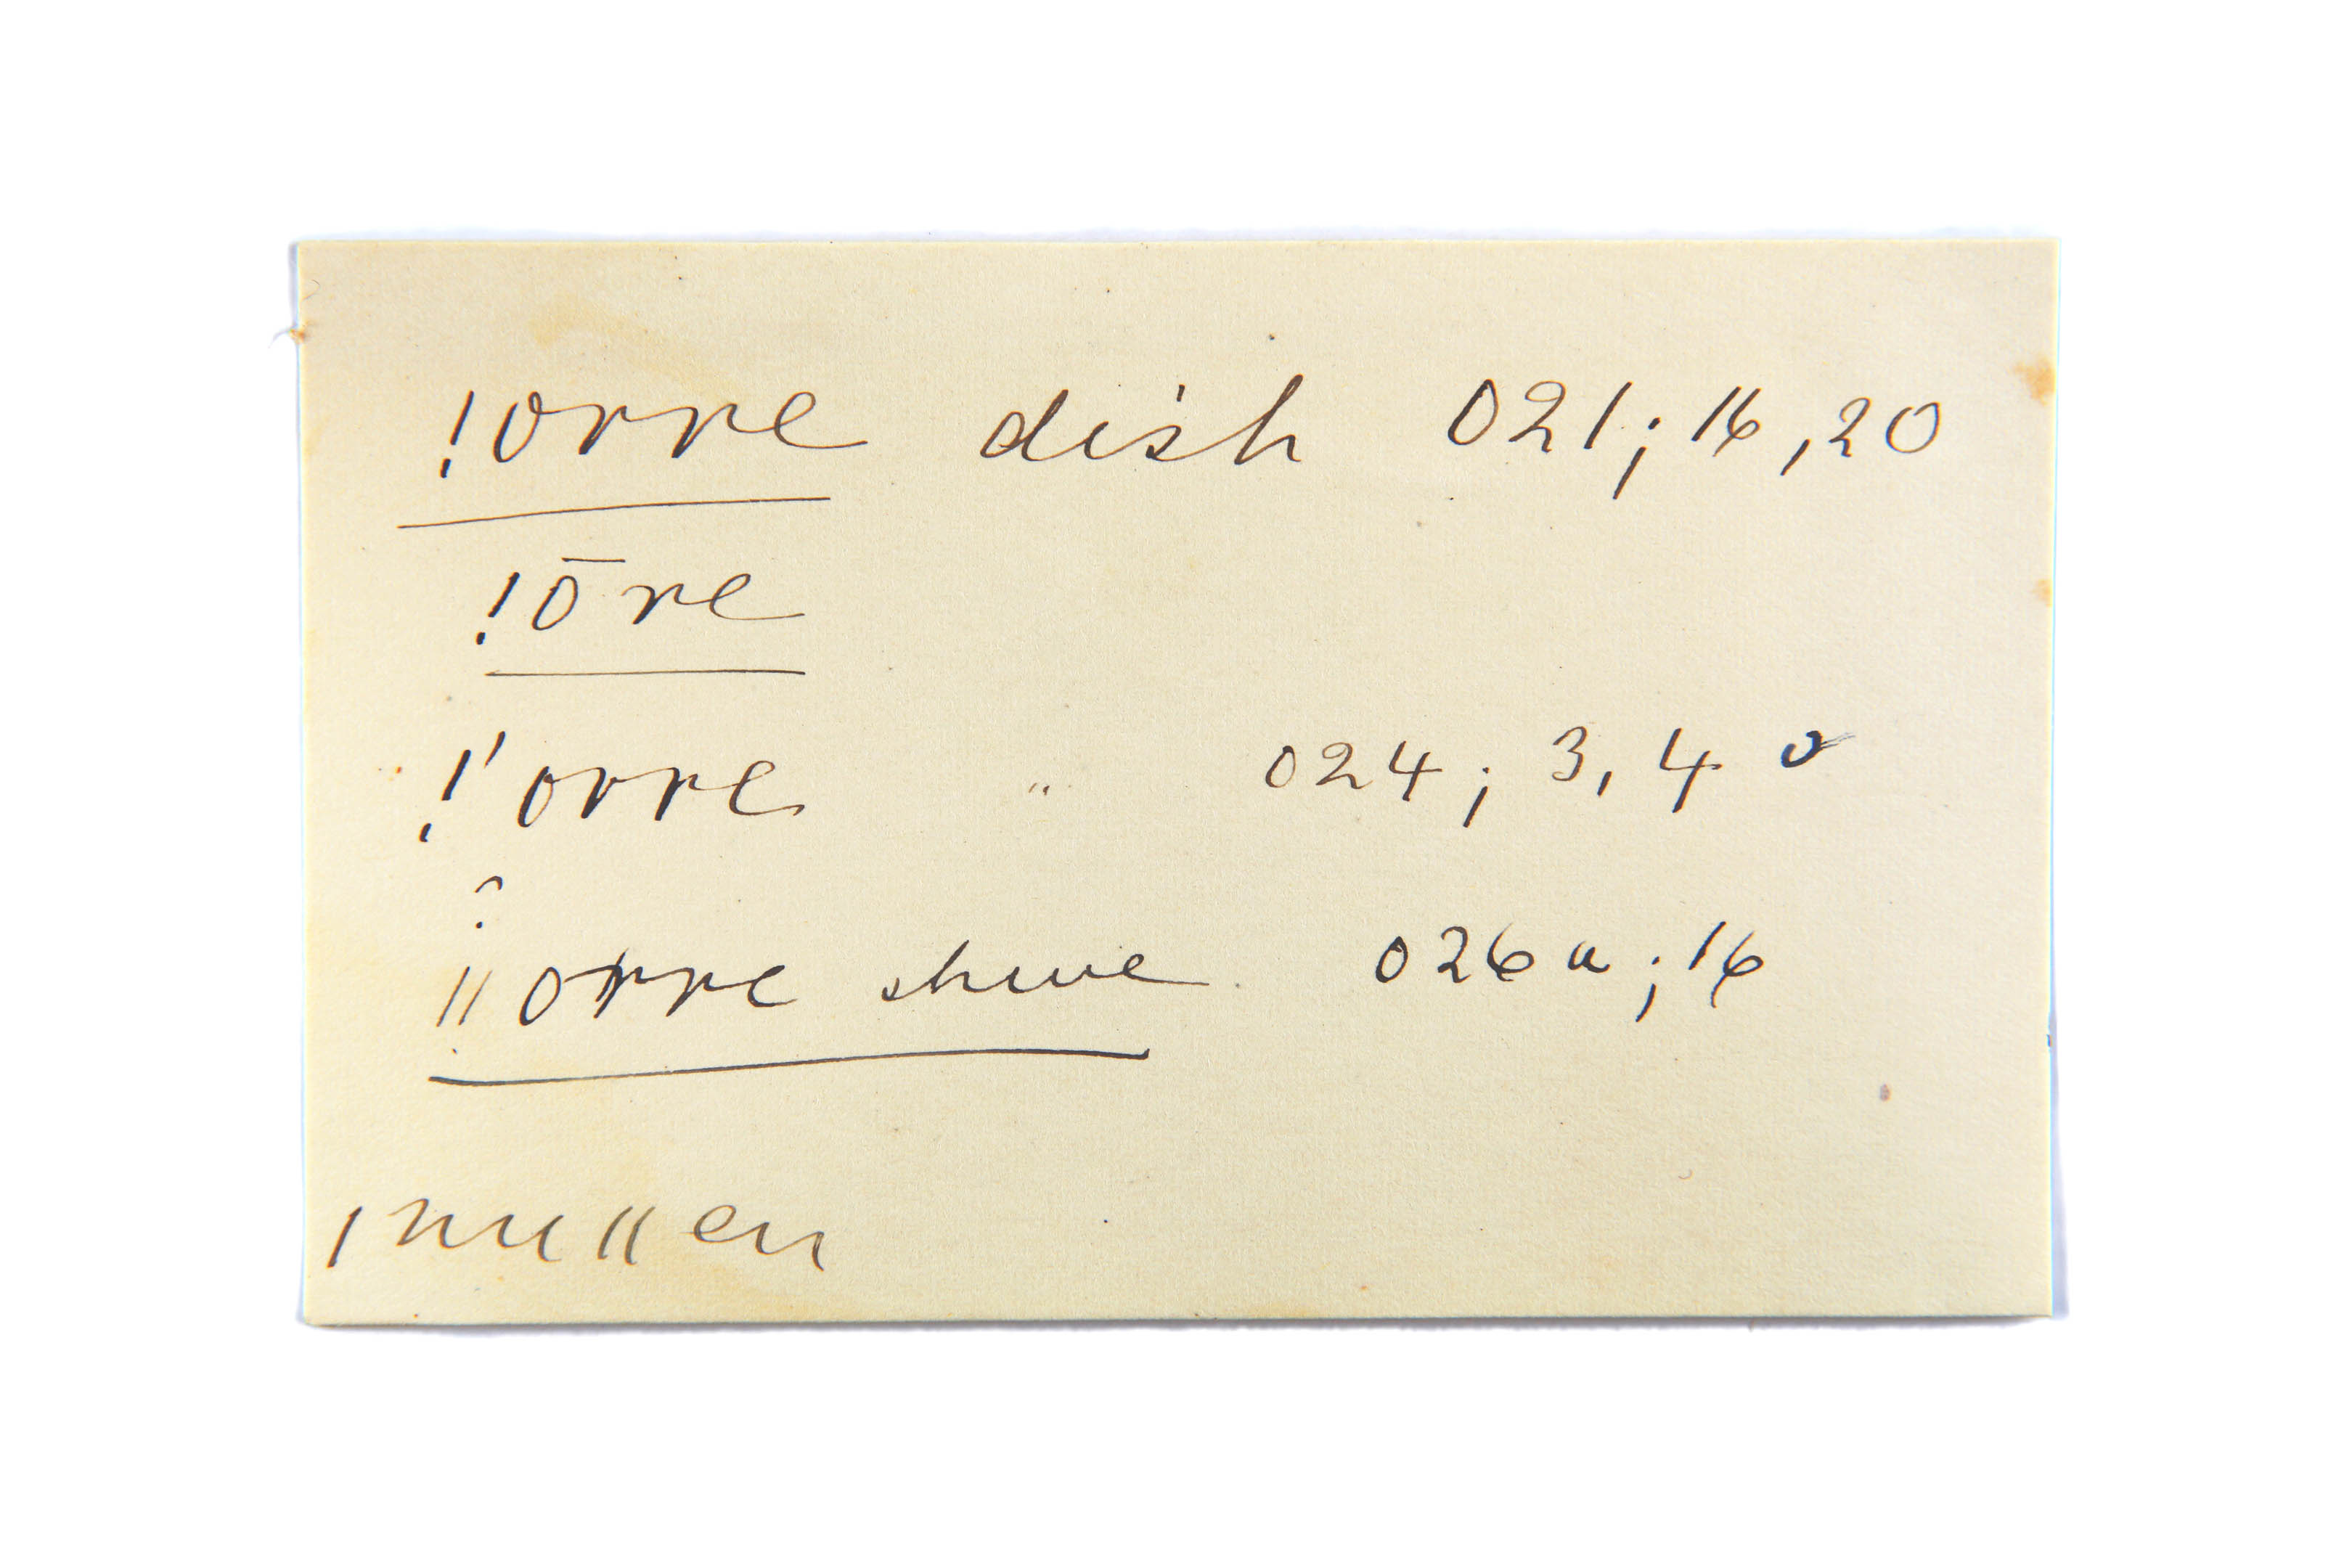 !orre dish 021; 16, 20
!ōre
!'orre " 024; 3, 4
?
ǁorre shwe 026a; 16
ǀnuǁen